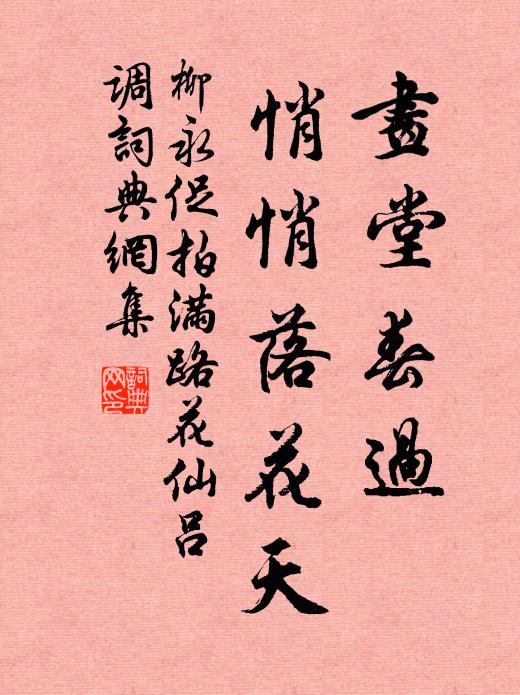 畫堂春過
悄悄落花天
柳永促拍滿路花仙呂
調詞典網集
詞典
网印